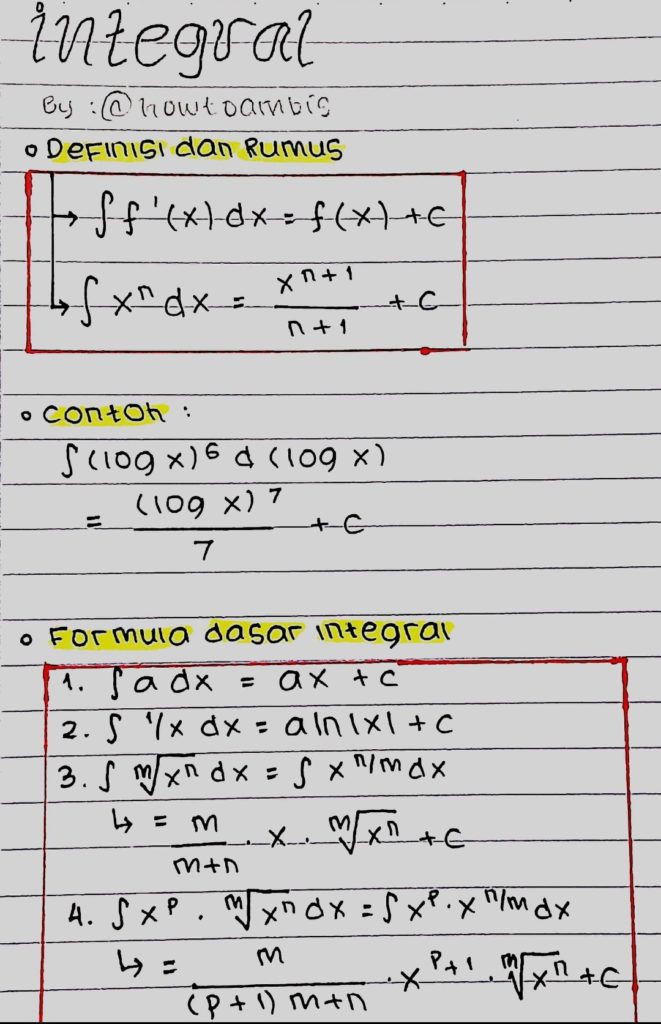 integral
By : @howtoambis
• Definisi dan Rumus
→ ∫ f'(x) dx = f(x) + C
↳ ∫ xⁿ dx = xⁿ⁺¹/n+1 + C
• Contoh :
∫(log x)⁶ d (log x)
= (log x)⁷/7 + C
• Formula dasar integral
1. ∫ a dx = ax + C
2. ∫ 1/x dx = a ln |x| + C
3. ∫ ᵐ√xⁿ dx = ∫ x^n/m dx
↳ = m/m+n . x . ᵐ√xⁿ + C
4. ∫ x^p . ᵐ√xⁿ dx = ∫ x^p . x^n/m dx
↳ = m/(p+1) m+n . x^p+1 . ᵐ√xⁿ + C